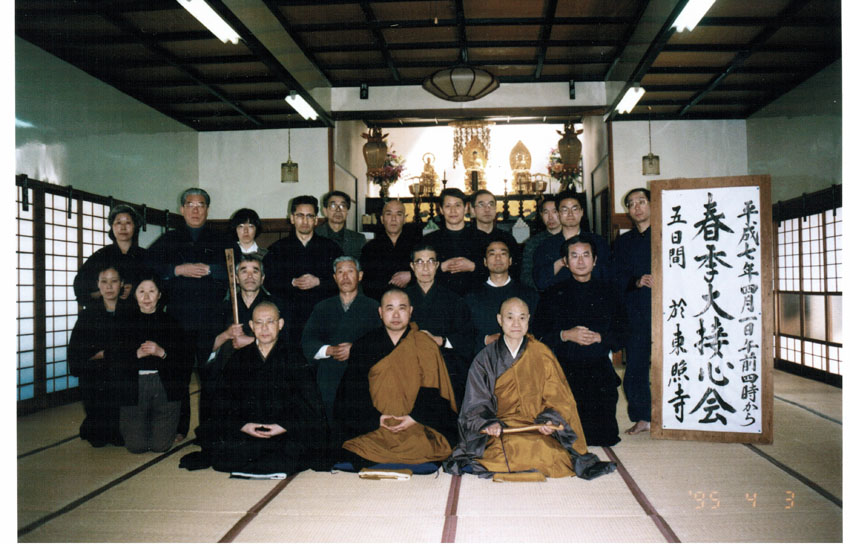 平成七年四月一日午前四時から
春季大接心会
五日間　於東照寺
'95 4 3